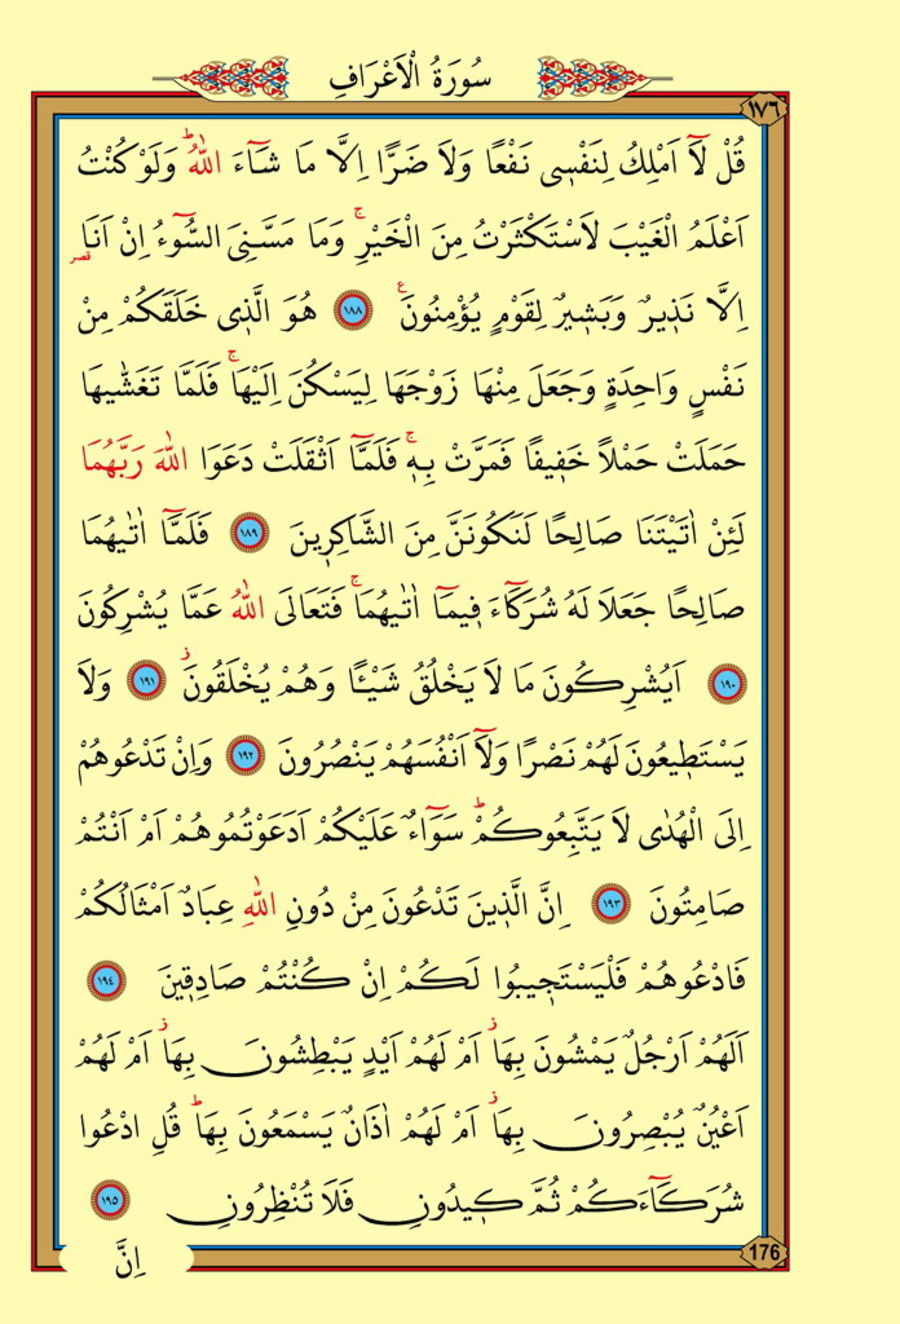 سُورَةُ الْاَعْرَافِ
١٧٦
قُلْ لَٓا اَمْلِكُ لِنَفْسٖى نَفْعًا وَلَا ضَرًّا اِلَّا مَا شَٓاءَ اللّٰهُؕ وَلَوْ كُنْتُ
اَعْلَمُ الْغَيْبَ لَاسْتَكْثَرْتُ مِنَ الْخَيْرِۚ وَمَا مَسَّنِىَ السُّٓوءُ اِنْ اَنَا۬
قصر
اِلَّا نَذٖيرٌ وَبَشٖيرٌ لِقَوْمٍ يُؤْمِنُونَ ع ١٨٨ هُوَ الَّذٖى خَلَقَكُمْ مِنْ
نَفْسٍ وَاحِدَةٍ وَجَعَلَ مِنْهَا زَوْجَهَا لِيَسْكُنَ اِلَيْهَاۚ فَلَمَّا تَغَشّٰيهَا
حَمَلَتْ حَمْلًا خَفٖيفًا فَمَرَّتْ بِهٖۚ فَلَمَّٓا اَثْقَلَتْ دَعَوَا اللّٰهَ رَبَّهُمَا
لَئِنْ اٰتَيْتَنَا صَالِحًا لَنَكُونَنَّ مِنَ الشَّاكِرٖينَ ١٨٩ فَلَمَّٓا اٰتٰيهُمَا
صَالِحًا جَعَلَا لَهُ شُرَكَٓاءَ فٖيمَٓا اٰتٰيهُمَاۚ فَتَعَالَى اللّٰهُ عَمَّا يُشْرِكُونَ
١٩٠ اَيُشْرِكُونَ مَا لَا يَخْلُقُ شَيْـًٔا وَهُمْ يُخْلَقُونَ ز ١٩١ وَلَا
يَسْتَطٖيعُونَ لَهُمْ نَصْرًا وَلَٓا اَنْفُسَهُمْ يَنْصُرُونَ ١٩٢ وَاِنْ تَدْعُوهُمْ
اِلَى الْهُدٰى لَا يَتَّبِعُوكُمْؕ سَوَٓاءٌ عَلَيْكُمْ اَدَعَوْتُمُوهُمْ اَمْ اَنْتُمْ
صَامِتُونَ ١٩٣ اِنَّ الَّذٖينَ تَدْعُونَ مِنْ دُونِ اللّٰهِ عِبَادٌ اَمْثَالُكُمْ
فَادْعُوهُمْ فَلْيَسْتَجٖيبُوا لَكُمْ اِنْ كُنْتُمْ صَادِقٖينَ ١٩٤
اَلَهُمْ اَرْجُلٌ يَمْشُونَ بِهَا ز اَمْ لَهُمْ اَيْدٍ يَبْطِشُونَ بِهَا ز اَمْ لَهُمْ
اَعْيُنٌ يُبْصِرُونَ بِهَا ز اَمْ لَهُمْ اٰذَانٌ يَسْمَعُونَ بِهَاؕ قُلِ ادْعُوا
شُرَكَٓاءَكُمْ ثُمَّ كٖيدُونِ فَلَا تُنْظِرُونِ ١٩٥
176
اِنَّ